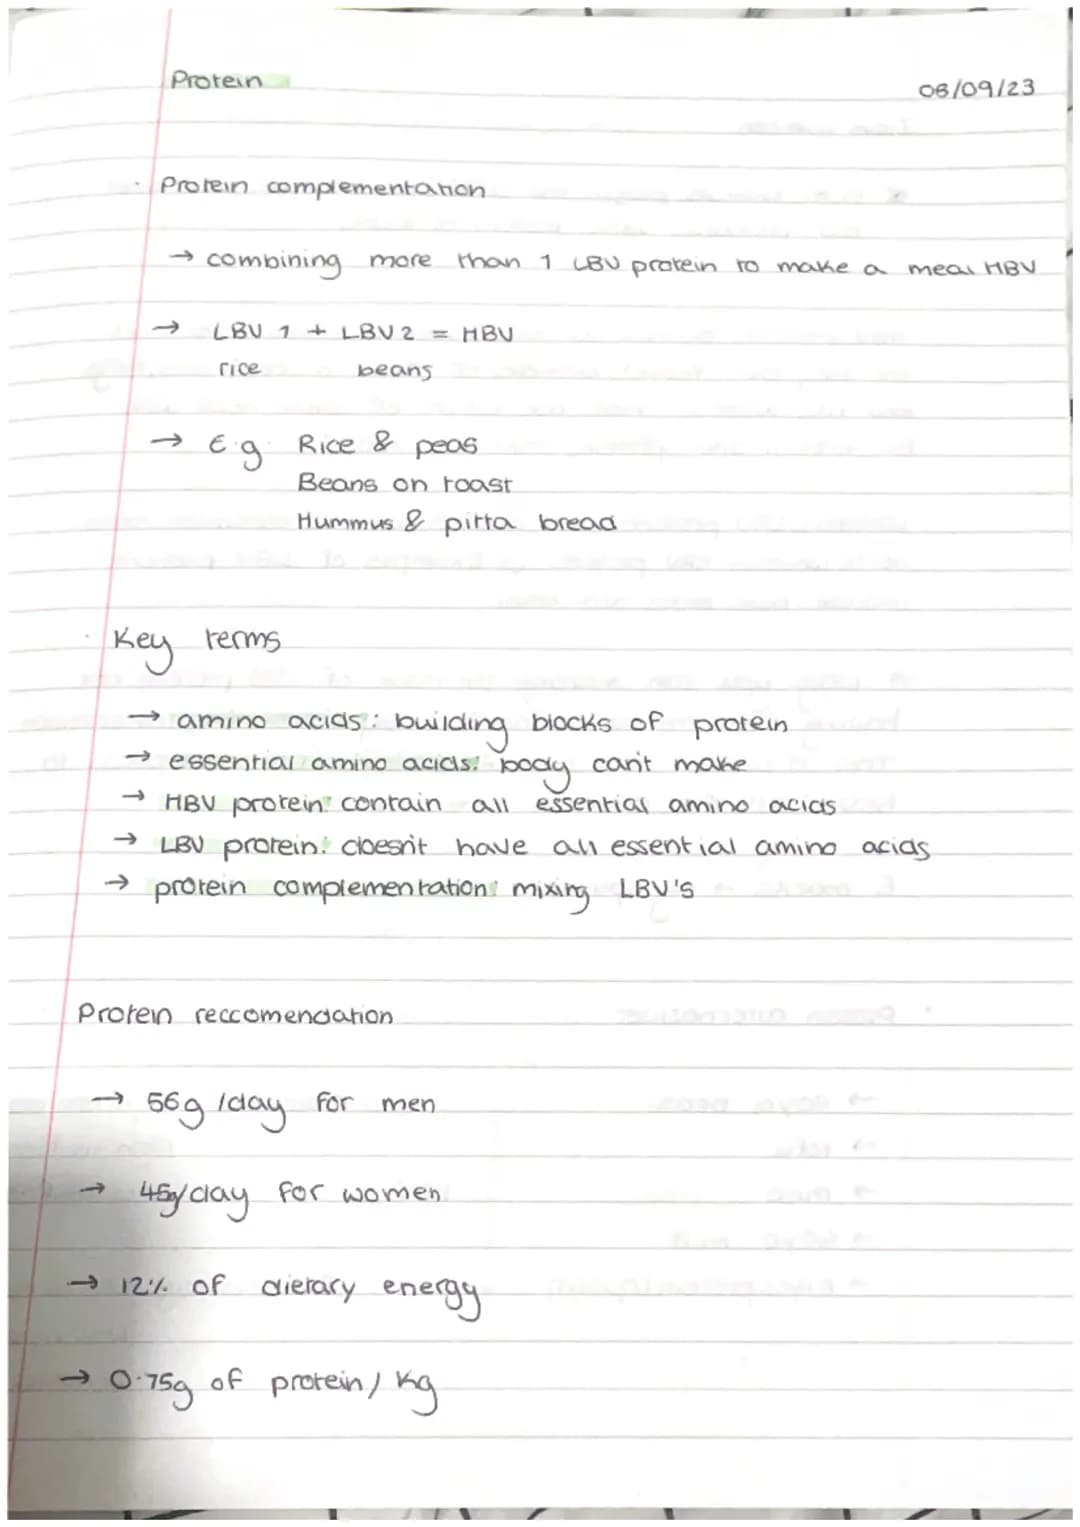 Protein
08/09/23
Protein complementation
→ combining more than 1 LBV protein to make a meal HBV
→ LBV 1 + LBV 2 = HBV
rice beans
→ E.g. Rice & peas
Beans on toast
Hummus & pitta bread
Key terms
→ amino acids: building blocks of protein
→ essential amino acids: body can't make
→ HBV protein: contain all essential amino acids
→ LBV protein: doesn't have all essential amino acids
→ protein complementation: mixing LBV's
Protein reccomendation
→ 56g /day for men
→ 45g/day for women
→ 12% of dietary energy
→ 0.75g of protein / kg